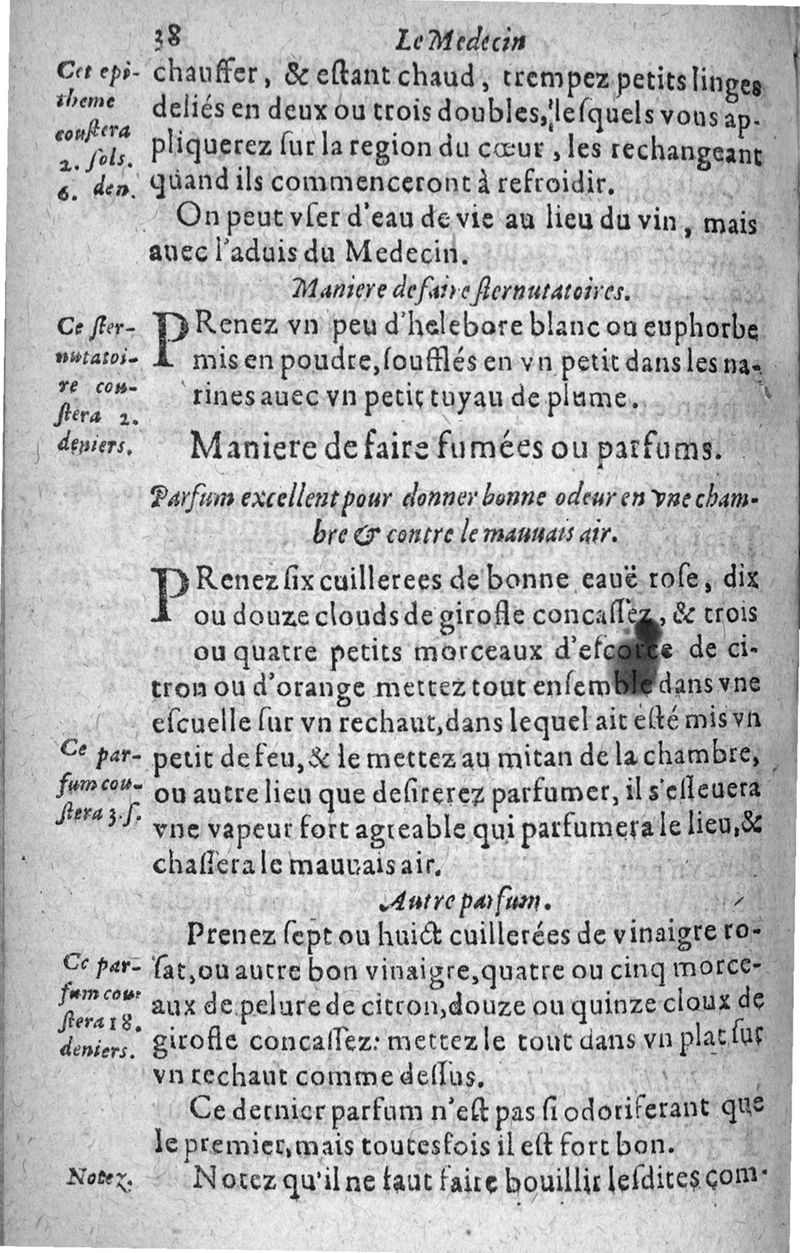 38 Le Medecin
chauffer, & eſtant chaud, trempez petits linges
deliés en deux ou trois doubles, leſquels vous ap-
pliquerez ſur la region du cœur, les rechangeant
quand ils commenceront à refroidir.
Cet epi-
theme
couſtera
2. ſols.
6. den.
On peut vſer d'eau de vie au lieu du vin, mais
auec l'aduis du Medecin.
Maniere de faire ſternutatoires.
PRenez vn peu d'helebore blanc ou euphorbe
mis en poudre, ſoufflés en vn petit dans les na-
rines auec vn petit tuyau de plume.
Ce ſter-
nutatoi-
re cou-
ſtera 2.
deniers.
Maniere de faire fumées ou parfums.
Parfum excellent pour donner bonne odeur en vne cham-
bre & contre le mauuais air.
PRenez ſix cuillerees de bonne eauë roſe, dix
ou douze clouds de girofle concaſſez, & trois
ou quatre petits morceaux d'eſcorce de ci-
tron ou d'orange mettez tout enſemble dans vne
eſcuelle ſur vn rechaut, dans lequel ait eſté mis vn
petit de feu, & le mettez au mitan de la chambre,
ou autre lieu que deſirerez parfumer, il s'eſleuera
vne vapeur fort agreable qui parfumera le lieu, &
chaſſera le mauuais air.
Ce par-
fum cou-
ſtera 3. ſ.
Autre parfum.
Prenez ſept ou huict cuillerées de vinaigre ro-
ſat, ou autre bon vinaigre, quatre ou cinq morce-
aux de pelure de citron, douze ou quinze cloux de
girofle concaſſez: mettez le tout dans vn plat ſur
vn rechaut comme deſſus.
Ce par-
fum cou-
ſtera 18.
deniers.
Ce dernier parfum n'eſt pas ſi odoriferant que
le premier, mais toutesfois il eſt fort bon.
Notez.
Notez qu'il ne faut faire bouillir leſdites com-